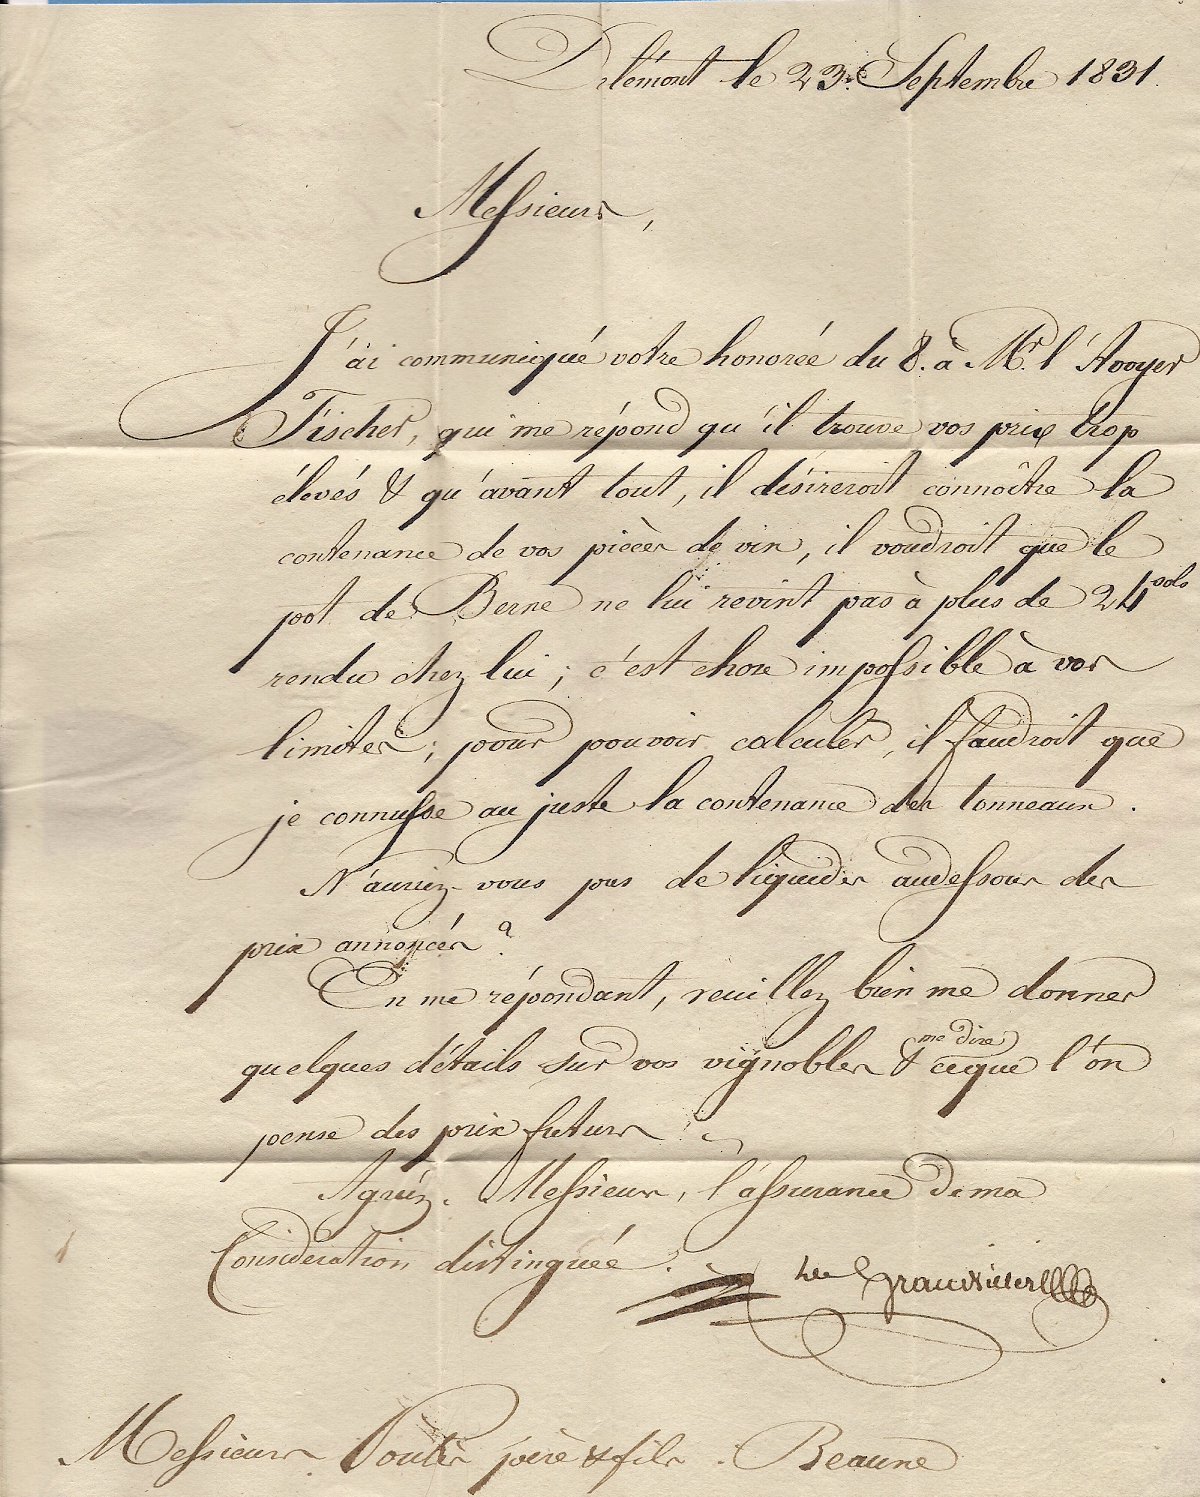 Delémont le 23. Septembre 1831.
Messieurs,
J'ai communiqué votre honorée du 8. à Mr. l'Avoyer
Fischer, qui me répond qu'il trouve vos prix trop
élevés & qu'avant tout, il désireroit connoître la
contenance de vos pièces de vin, il voudroit que le
pot de Berne ne lui revint pas à plus de 24 sols
rendu chez lui; c'est chose impossible à vos
limites; pour pouvoir calculer, il faudroit que
je connusse au juste la contenance des tonneaux.
N'auriez-vous pas de liquides audessous des
prix annoncés?
En me répondant, veuillez bien me donner
quelques détails sur vos vignobles & me dire ceque l'on
pense des prix futurs
Agréez, Messieurs, l'assurance de ma
Considération distinguée.
Grandvillers
Messieurs père & fils. Beaune